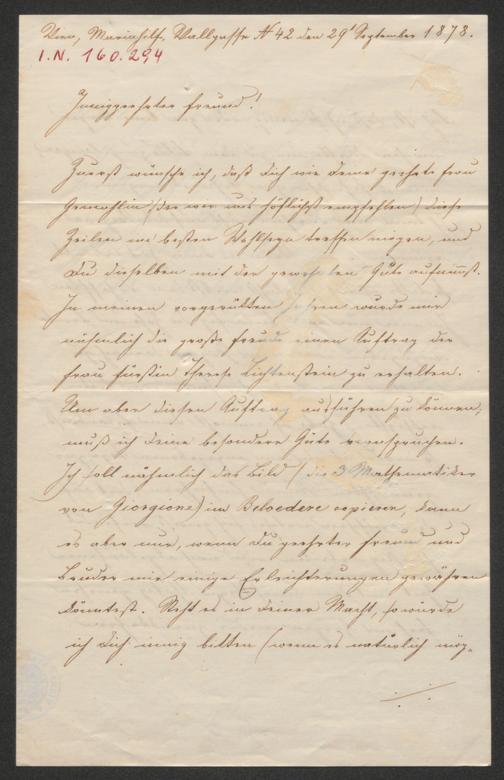 Wien, Mariahilf, Wallgasse № 42 den 29t September 1873.
I.N. 160.294
Inniggeehrter Freund!
Zuerst wünsche ich, daß Dich wie Deine geehrte Frau
Gemahlin (der wir uns höflichst empfehlen) diese
Zeilen im besten Wohlseyn treffen mögen, und
Du dieselben mit der gewohnten Güte aufnimmst.
In meinen vorgerückten Jahren wurde mir
nähmlich die große Freude einen Auftrag der
Frau Fürstin Therese Lichtenstein zu erhalten.
Um aber diesen Auftrag ausführen zu können,
muß ich Deine besondere Güte beanspruchen.
Ich soll nähmlich das Bild (die 3 Mathematiker
von Giorgione) im Belvedere copieren, kann
es aber nur, wenn Du geehrter Freund und
Bruder mir einige Erleichterungen gewähren
könntest. Steht es in Deiner Macht, so würde
ich Dich innig bitten (wenn es natürlich mög-